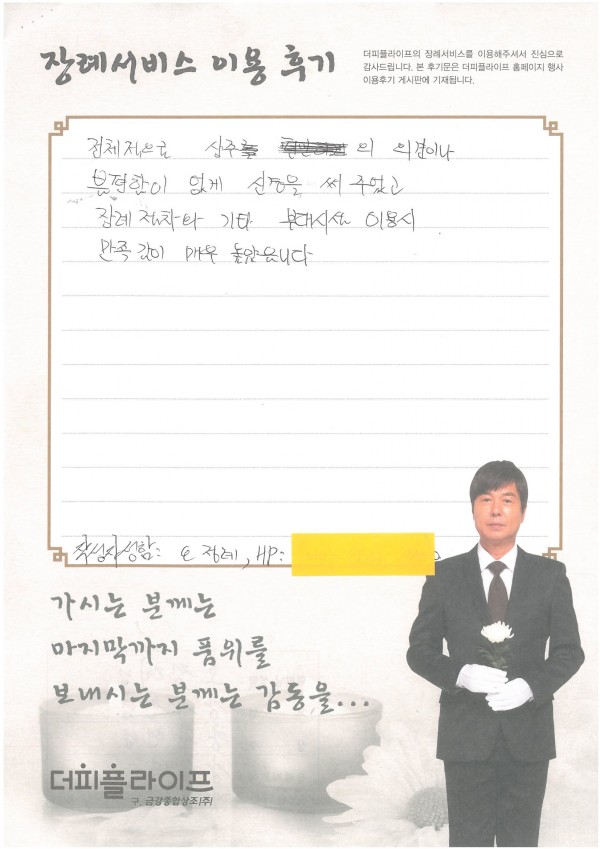 장례서비스 이용 후기
더피플라이프의 장례서비스를 이용해주셔서 진심으로
감사드립니다. 본 후기문은 더피플라이프 홈페이지 행사
이용후기 게시판에 기재됩니다.
전체적으로 상주 의 의견이나
불편함이 없게 신경을 써 주었고
장례 절차와 기타 부대시설 이용시
만족감이 매우 높았습니다
작성자성함: 장례, HP:
가시는 분께는
마지막까지 품위를
보내시는 분께는 감동을...
더피플라이프
구. 금강종합상조(주)